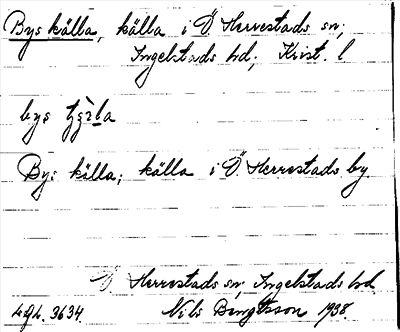 Bys källa, källa i Ö. Herrestads sn;
Ingelstads hd; Krist. l
bys
Bys källa; källa i Ö. Herrestads by.
Ö Herrestads sn, Ingelstads hd
Lgh. 3634. Nils Bengtsson 1938